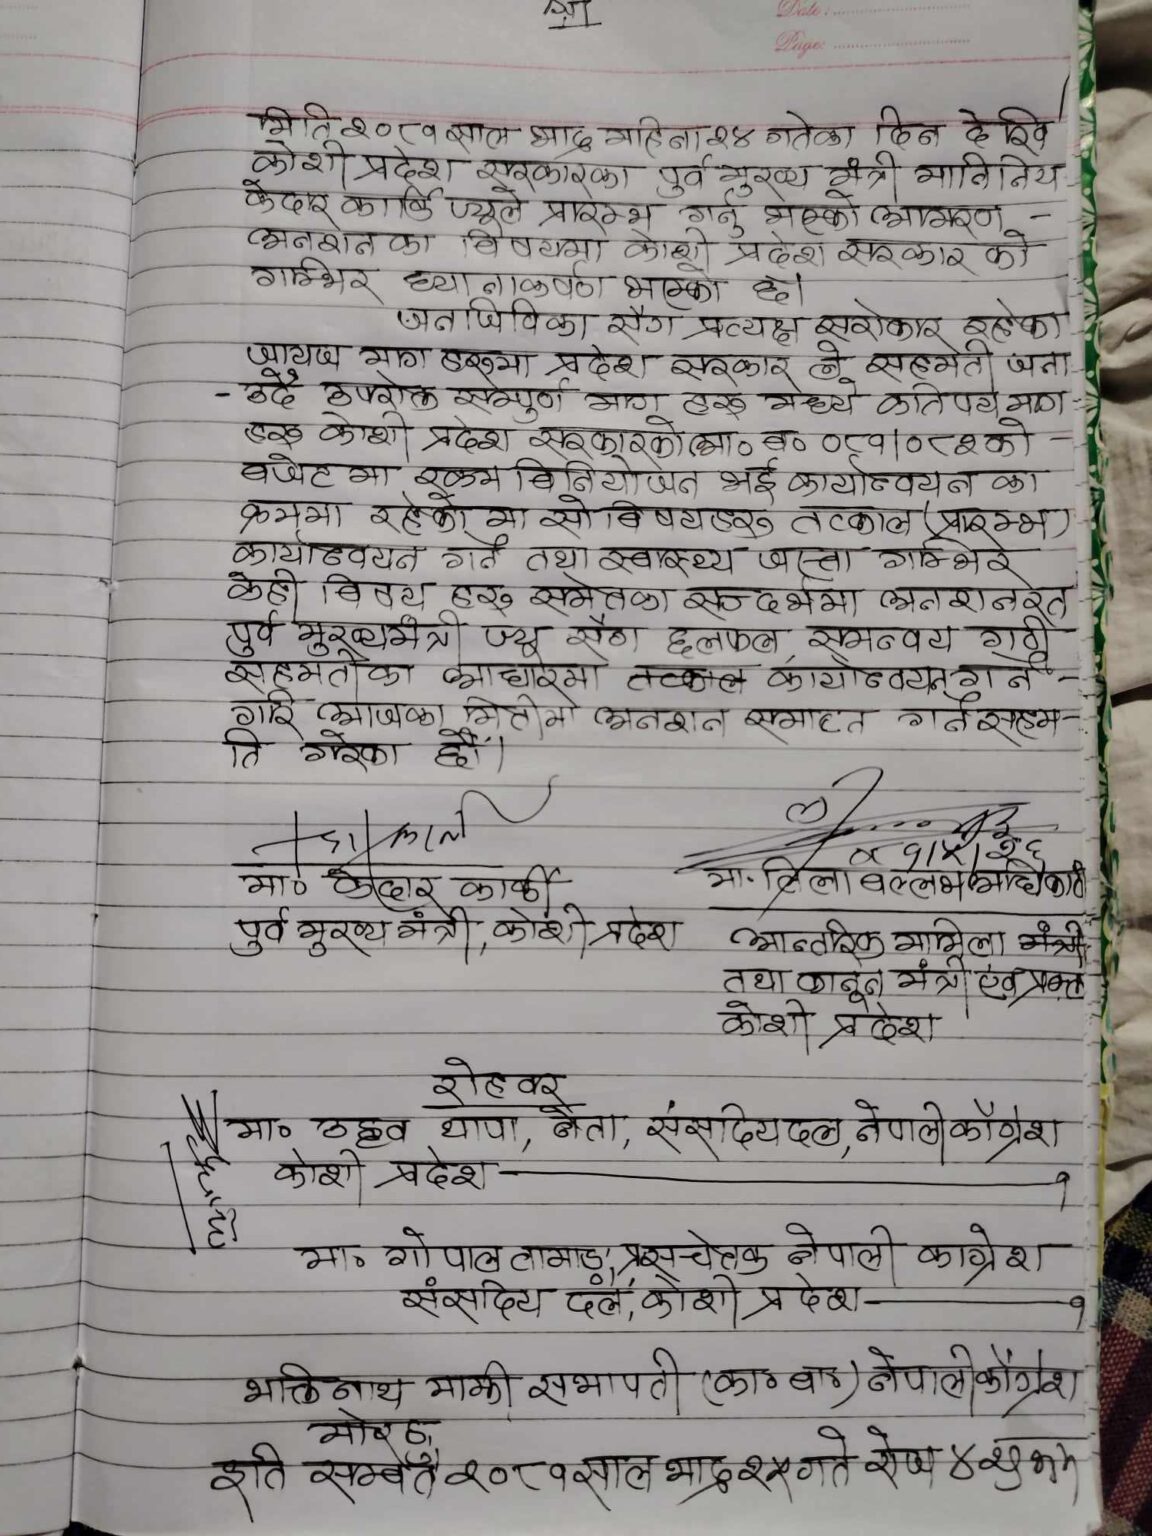 श्री
Date:
Page:
मिति २०८१ साल भाद्र महिना २४ गतेका दिन देखि
कोशी प्रदेश सरकारका पुर्व मुख्य मंत्री माननिय
केदार कार्कि ज्यूले प्रारम्भ गर्नु भएको आमरण -
अनशन का विषयमा कोशी प्रदेश सरकार को
गम्भिर ध्यानाकर्षण भएको छ।
जनजिविका सँग प्रत्यक्ष सरोकार रहेका
जायज माग हरुमा प्रदेश सरकार ले सहमती जना
- उदै उपरोक्त सम्पुर्ण माग हरु मध्ये कतिपय माग
हरु कोशी प्रदेश सरकारको आ० ब० ०८१/०८२ को -
बजेट मा रकम विनियोजन भई कार्यान्वयन का
क्रममा रहेको मा सो विषयहरु तत्काल (प्रारम्भ)
कार्यान्वयन गर्ने तथा स्वास्थ्य जस्ता गम्भिर
केही विषय हरु समेतका सन्दर्भमा अनशनरत
पुर्व मुख्यमंत्री ज्यू सँग छलफल, समन्वय गरी
सहमतीका आधारमा तत्काल कार्यान्वयन गर्ने -
गरि आजका मितीमा अनशन समाप्त गर्न सहम-
ति गरेका छौं।
मा० केदार कार्की
पुर्व मुख्य मंत्री, कोशी प्रदेश
मा. लिला बल्लभ अधिकारी
आन्तरिक मामिला मंत्री
तथा कानून मंत्री एवं प्रवक्ता
कोशी प्रदेश
रोहवर
मा० उद्धव थापा, नेता, संसदिय दल, नेपाली काँग्रेश
कोशी प्रदेश १
मा० गोपाल तामाङ, प्रमुख सचेतक नेपाली काग्रेश
संसदिय दल, कोशी प्रदेश १
भक्तिनाथ माझी सभापती (का० बा०) नेपाली काँग्रेश
मोरङ
इति सम्बत २०८१ साल भाद्र २५ गते रोज ४ शुभम्